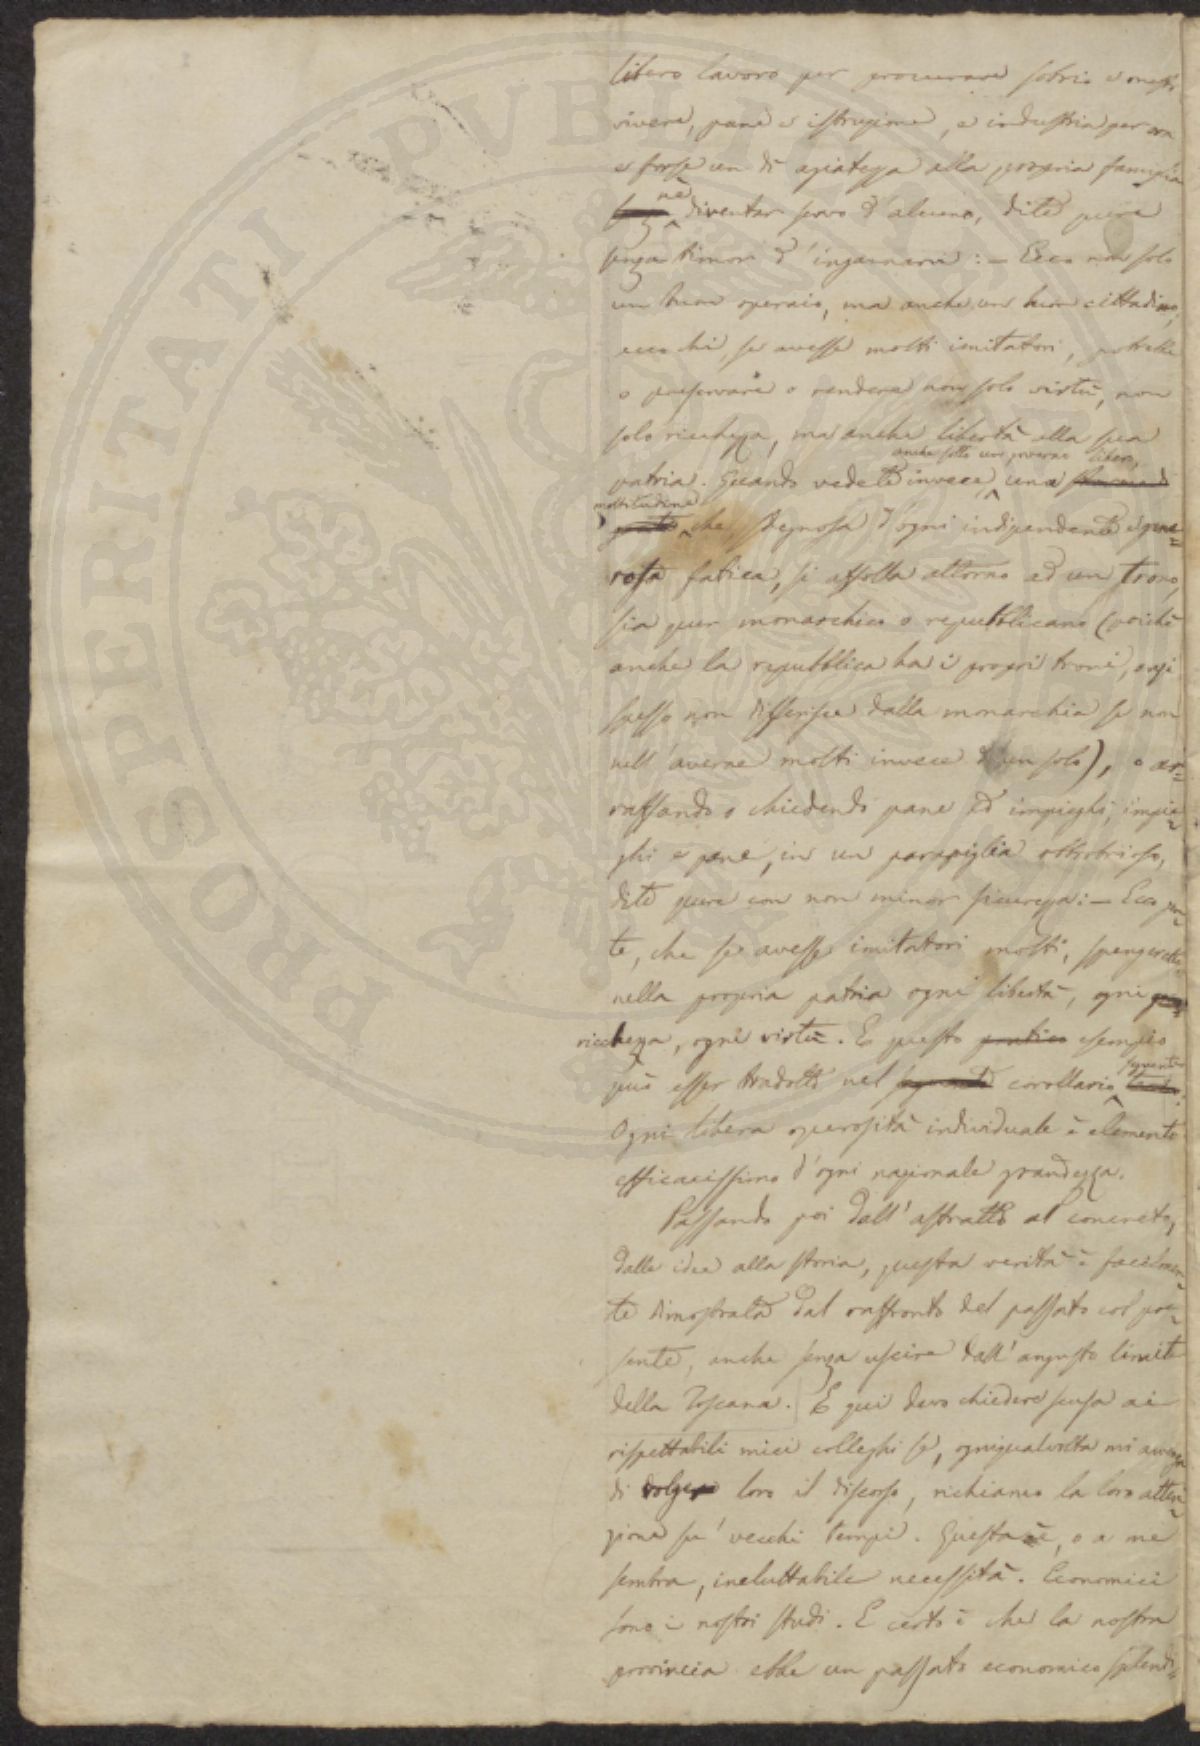 libero lavoro per procurare sobrio e onesto
vivere, pane e istruzione, e industria per ora
e forse un dì agiatezza alla propria famiglia
nè
diventar servo d'alcuno, dite pure
senza timor d'ingannarvi: — Ecco non solo
un buon operaio, ma anche un buon cittadino,
ecco chi, se avesse molti imitatori, potrebbe
o preservare o rendere non solo virtù, non
solo ricchezza, ma anche libertà alla sua
anche sotto un governo libero,
patria. Quando vedete invece una
moltitudine
che, sdegnosa d'ogni indipendente e gene=
rosa fatica, si affolla attorno ad un trono,
sia pur monarchico o repubblicano (poichè
anche la repubblica ha i propri troni, anzi
spesso non differisce dalla monarchia se non
nell'averne molti invece d'un solo), o ar=
raffando o chiedendo pane ed impieghi, impie=
ghi e pane, in un parapiglia obbrobrioso,
dite pure con non minor sicurezza: — Ecco gen=
te, che se avesse imitatori molti, spengerebbe
nella propria patria ogni libertà, ogni
ricchezza, ogni virtù. E questo pratico esempio
seguente
può esser tradotto nel seguente corollario
Ogni libera operosità individuale è elemento
efficacissimo d'ogni nazionale grandezza.
Passando poi dall'astratto al concreto,
dalle idee alla storia, questa verità è facilmen=
te dimostrata dal raffronto del passato col pre=
sente, anche senza uscire dall'angusto limite
della Toscana. E qui devo chiedere scusa ai
rispettabili miei colleghi se, ogniqualvolta mi avvenga
di volgere loro il discorso, richiamo la loro atten=
zione su' vecchi tempi. Questa è, o a me
sembra, ineluttabile necessità. Economici
sono i nostri studi. E certo è che la nostra
provincia ebbe un passato economico splendi=
PROSPERITATI PUBLICAE